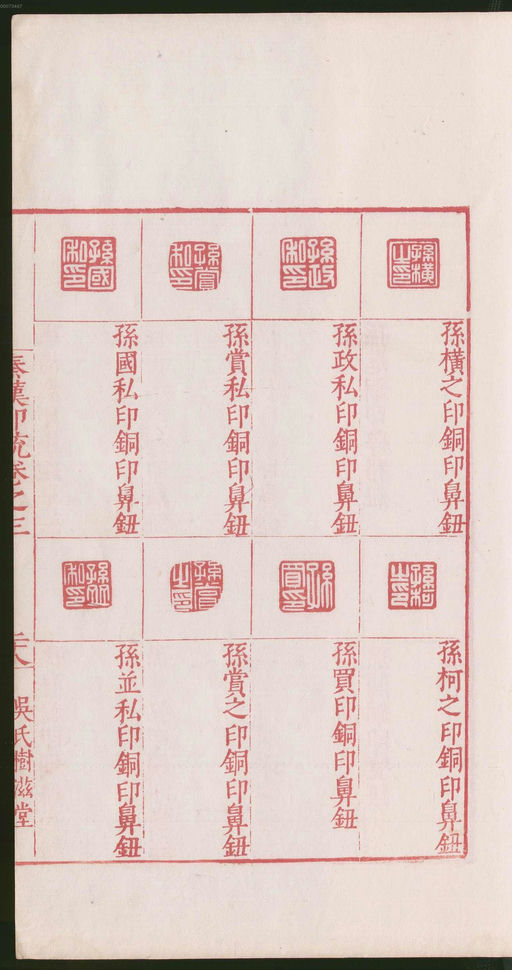 孫橫之印銅印鼻鈕
孫政私印銅印鼻鈕
孫賞私印銅印鼻鈕
孫國私印銅印鼻鈕
孫柯之印銅印鼻鈕
孫買印銅印鼻鈕
孫賞之印銅印鼻鈕
孫並私印銅印鼻鈕
秦漢印統卷之三
二八
吳氏樹滋堂
00073467